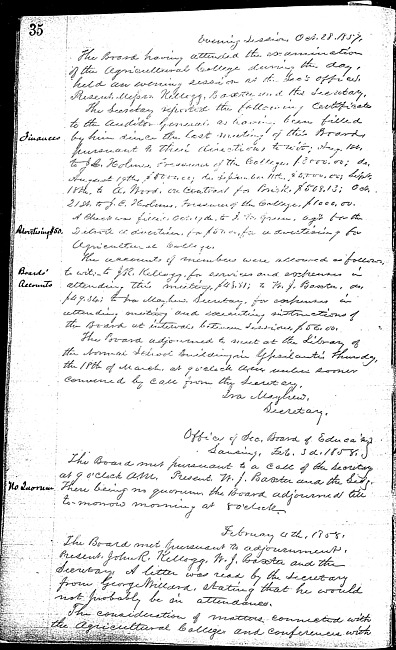 35
Evening Session Oct. 28. 1857.
The Board having attended the examination
of the Agricultural College during the day,
held an evening session at the Sec's office.
Present Messrs. Kellogg, Baxter and the Secretary.
The Secretary reported the following Certificates
to the Auditor General as having been filled
Finances
by him since the last meeting of this Board
pursuant to their directions to wit,
to J.C. Holmes, Treasurer of the College, $2000.00; do.
August 19th, do. September 11th, $5,000.00; Sept.
18th, to A. Wood, on contract for Brick, Oct.
21st to J.C. Holmes, Treasurer of the College, $1000.00.
Advertising $50.
A Check was to Green, ag't for the
Detroit Advertiser, for $50.00, for advertising for
Agricultural College.
The accounts of members were allowed as follows,
Boards' Accounts
to wit: to J.R. Kellogg, for services and expenses in
attending this meeting, to W. J. Baxter, do,
to Ira Mayhew, Secretary, for expenses in
attending meeting and executing instructions of
the Board at intervals between Sessions,
The Board adjourned to meet at the Library of
the Normal School Building in Ypsilanti Thursday,
the 18th of March, at 9 o'clock A.M. unless sooner
convened by call from the Secretary.
Ira Mayhew,
Secretary.
Office of Sec. Board of Educa'n,
Lansing, Feb. 3d. 1858.
The Board met pursuant to a Call of the Secretary
at 9 o'clock A.M. Present W. J. Baxter and the Sec'y.
No Quorum
There being no quorum the Board adjourned till
to-morrow morning at 8 o'clock.
February 4th, 1858.
The Board met pursuant to adjournment.
Present, John R. Kellogg, W. J. Baxter and the
Secretary. A letter was read by the Secretary
from George Willard, stating that he would
not probably be in attendance.
The consideration of matters connected with
the Agricultural College and conferences with